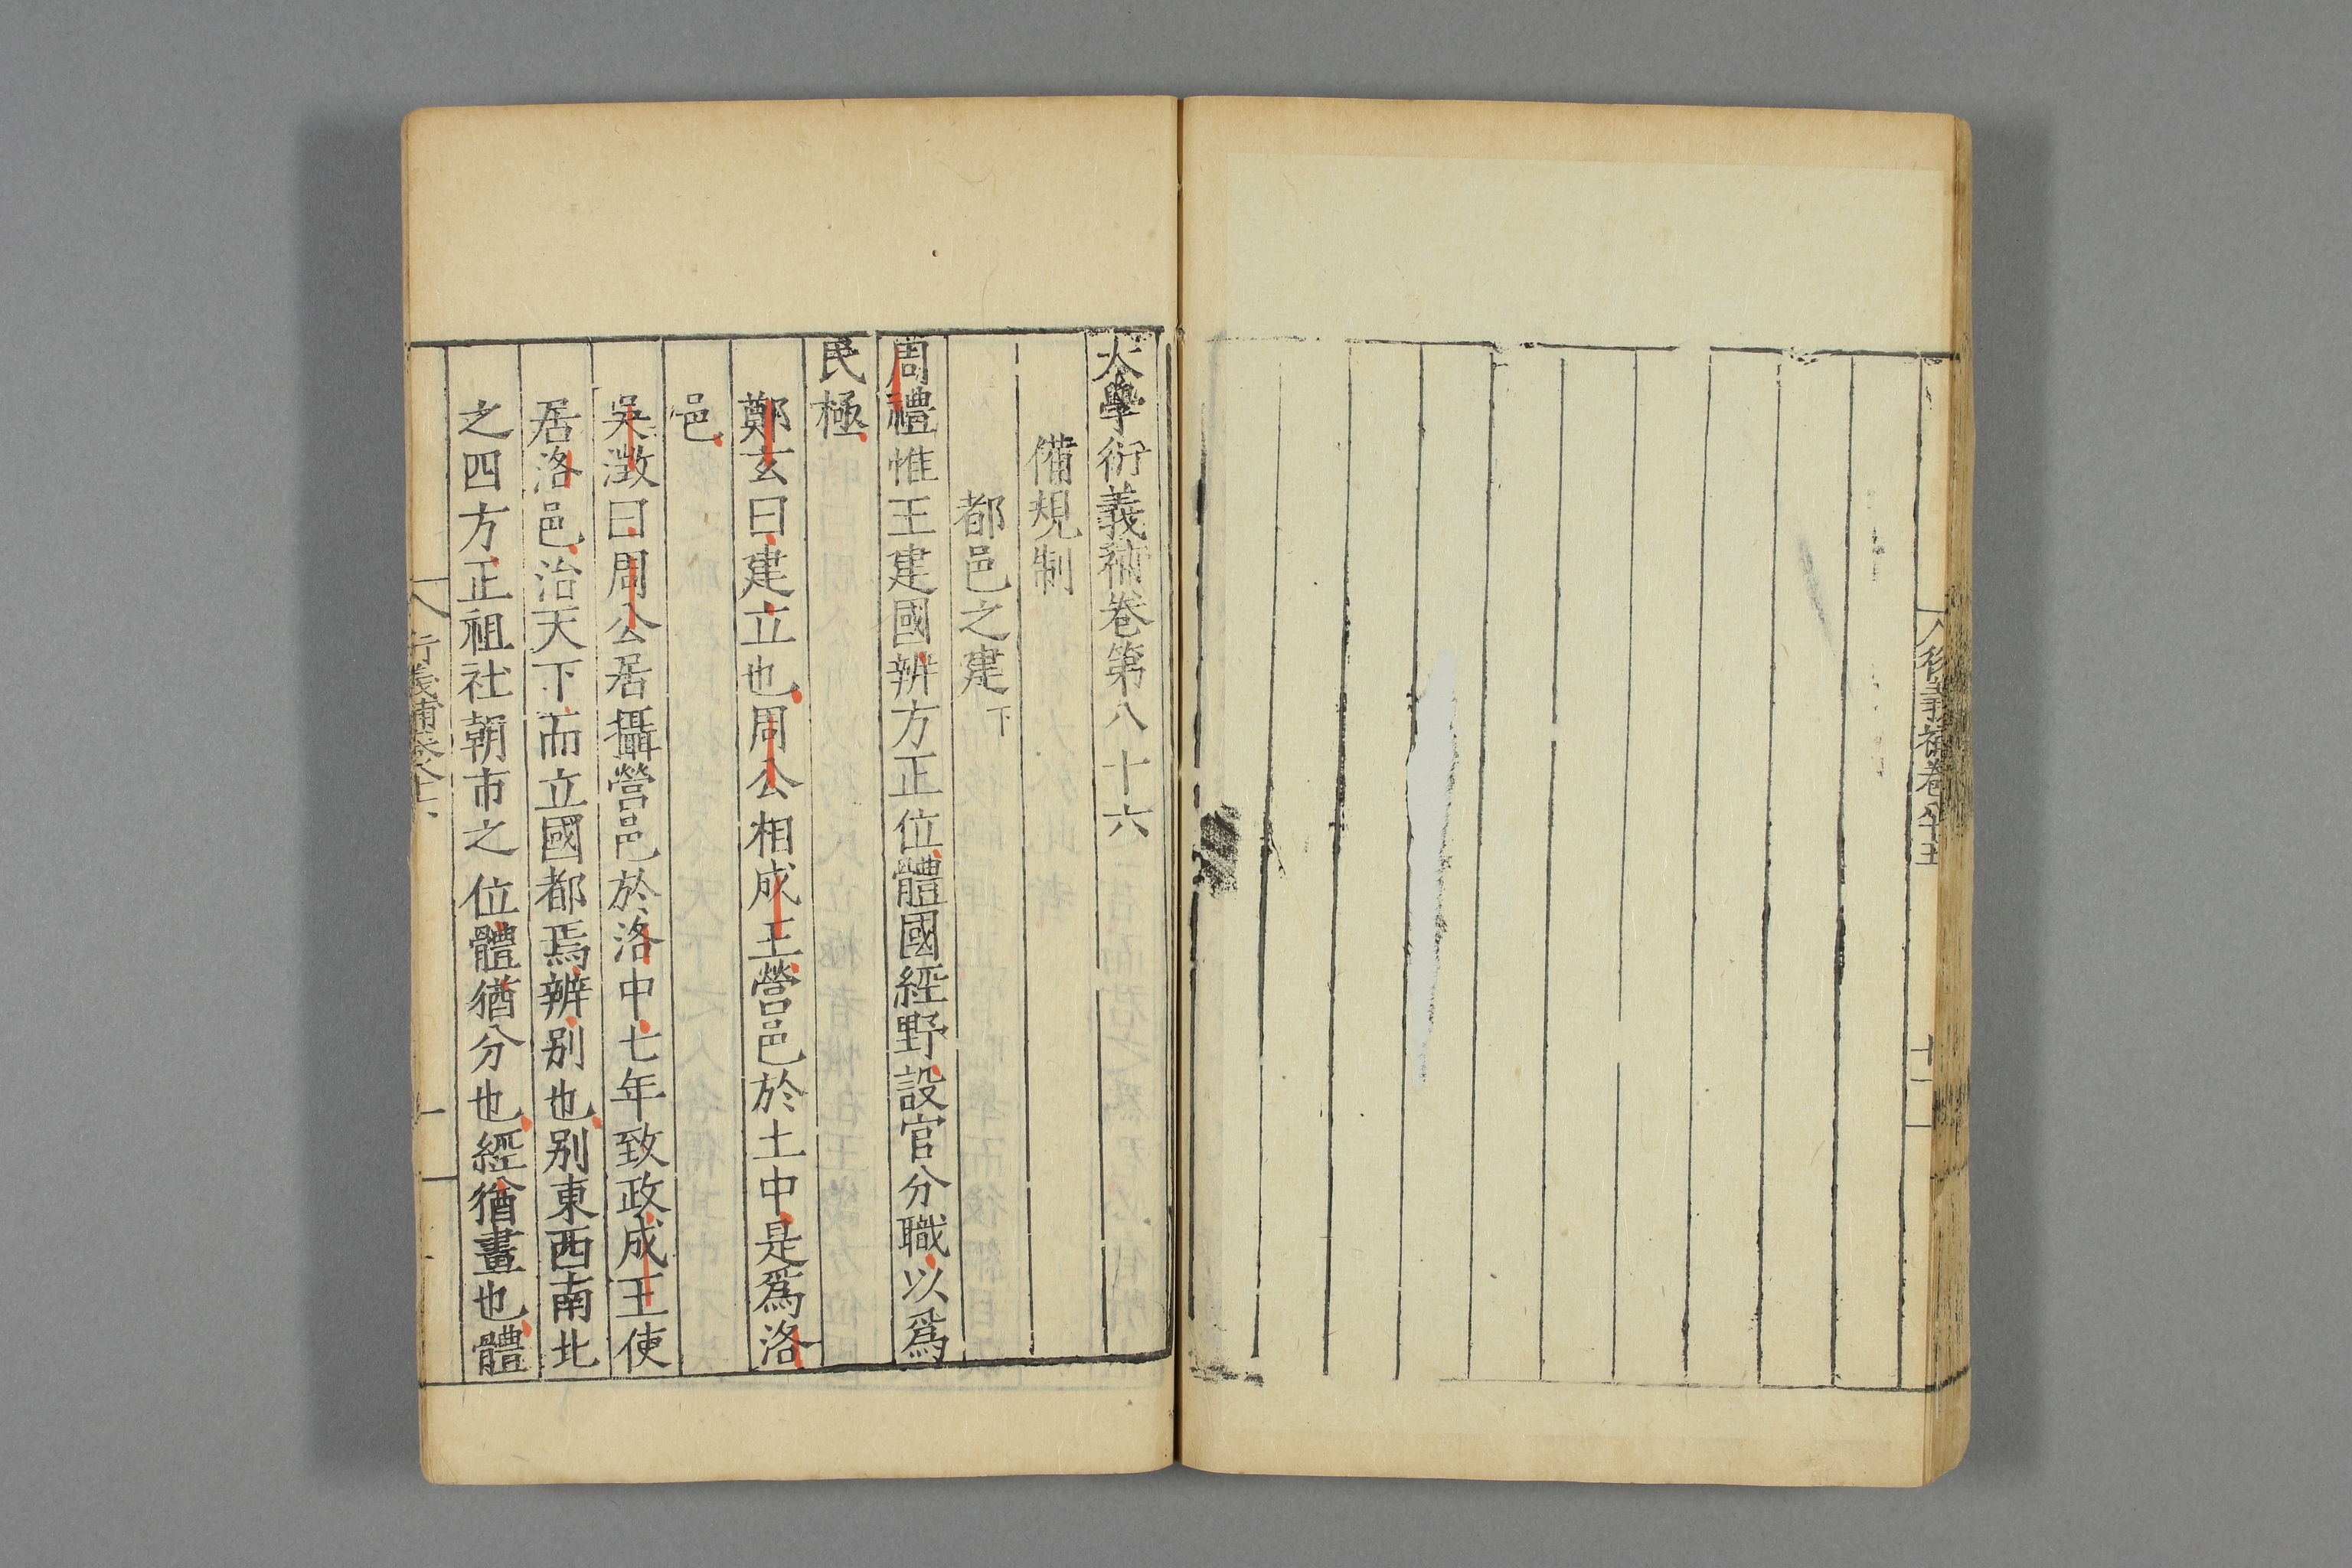 衍義補卷八十五
十一
大學衍義補卷第八十六
備規制
都邑之建下
周禮惟王建國辨方正位體國經野設官分職以爲
民極
鄭玄曰建立也周公相成王營邑於土中是爲洛
邑
吳澂曰周公居攝營邑於洛中七年致政成王使
居洛邑治天下而立國都焉辨別也別東西南北
之四方正祖社朝市之位體猶分也經猶畫也體
衍義補卷八十六
一